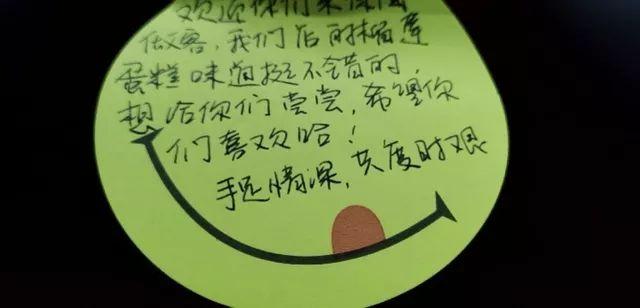 欢迎你们来
做客，我们店的榴莲
蛋糕味道挺不错的，
想给你们尝尝，希望你
们喜欢哈！
手足情深，共度时艰